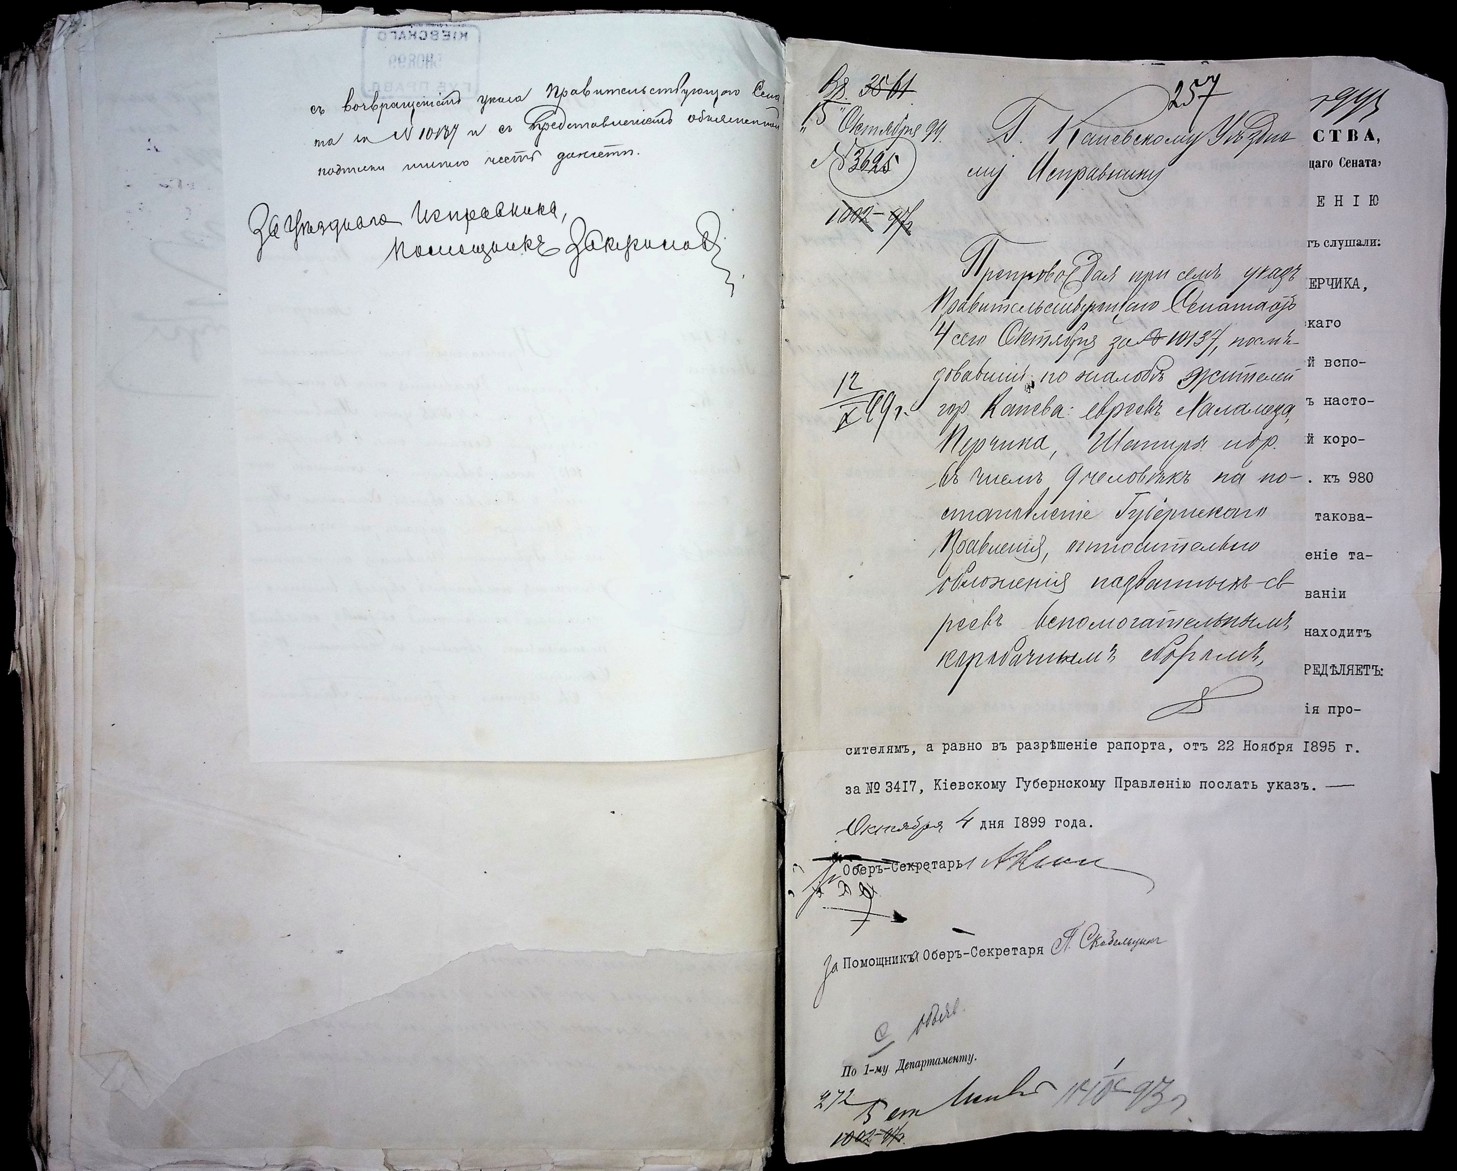 КІЕВСКАГО
съ возвращеніемъ указа Правительствующаго Сена
та за № 10137 и съ представленіемъ объясненной
подписки имѣю честь донести.
За Уѣзднаго Исправника,
Помощникъ
257
15 Октября 99.
№ 3695
1002-97
Г. Каневскому Уѣздно
му Исправнику
12/X 99 г.
Препровождая при семъ указъ
Правительствующаго Сената отъ
4 сего Октября за № 10137, послѣ-
довавшій по жалобѣ жителей
гор. Канева: евреевъ Маламеда,
Перчика, Шапиры и др.
въ числѣ 9 человѣкъ на по-
становленіе Губернскаго
Правленія, относительно
обложенія названныхъ ев
реевъ вспомогательнымъ
коробочнымъ сборомъ,
СТВА,
щаго Сената,
ЕНІЮ
ъ слушали:
ЕРЧИКА,
скаго
й вспо-
ъ насто-
й коро-
. къ 980
такова-
еніе та-
ваніи
находитъ
РЕДѢЛЯЕТЪ:
ія про-
сителямъ, а равно въ разрѣшеніе рапорта, отъ 22 Ноября 1895 г.
за № 3417, Кіевскому Губернскому Правленію послать указъ. —
Октября 4 дня 1899 года.
Оберъ-Секретарь
За Помощника Оберъ-Секретаря
По 1-му Департаменту.
272
1002-97